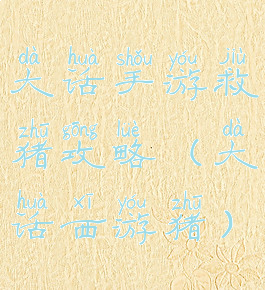 dà huà shǒu yóu jiù
大话手游救
zhū gōng lüè dà
猪攻略（大
huà xī yóu zhū
话西游猪）